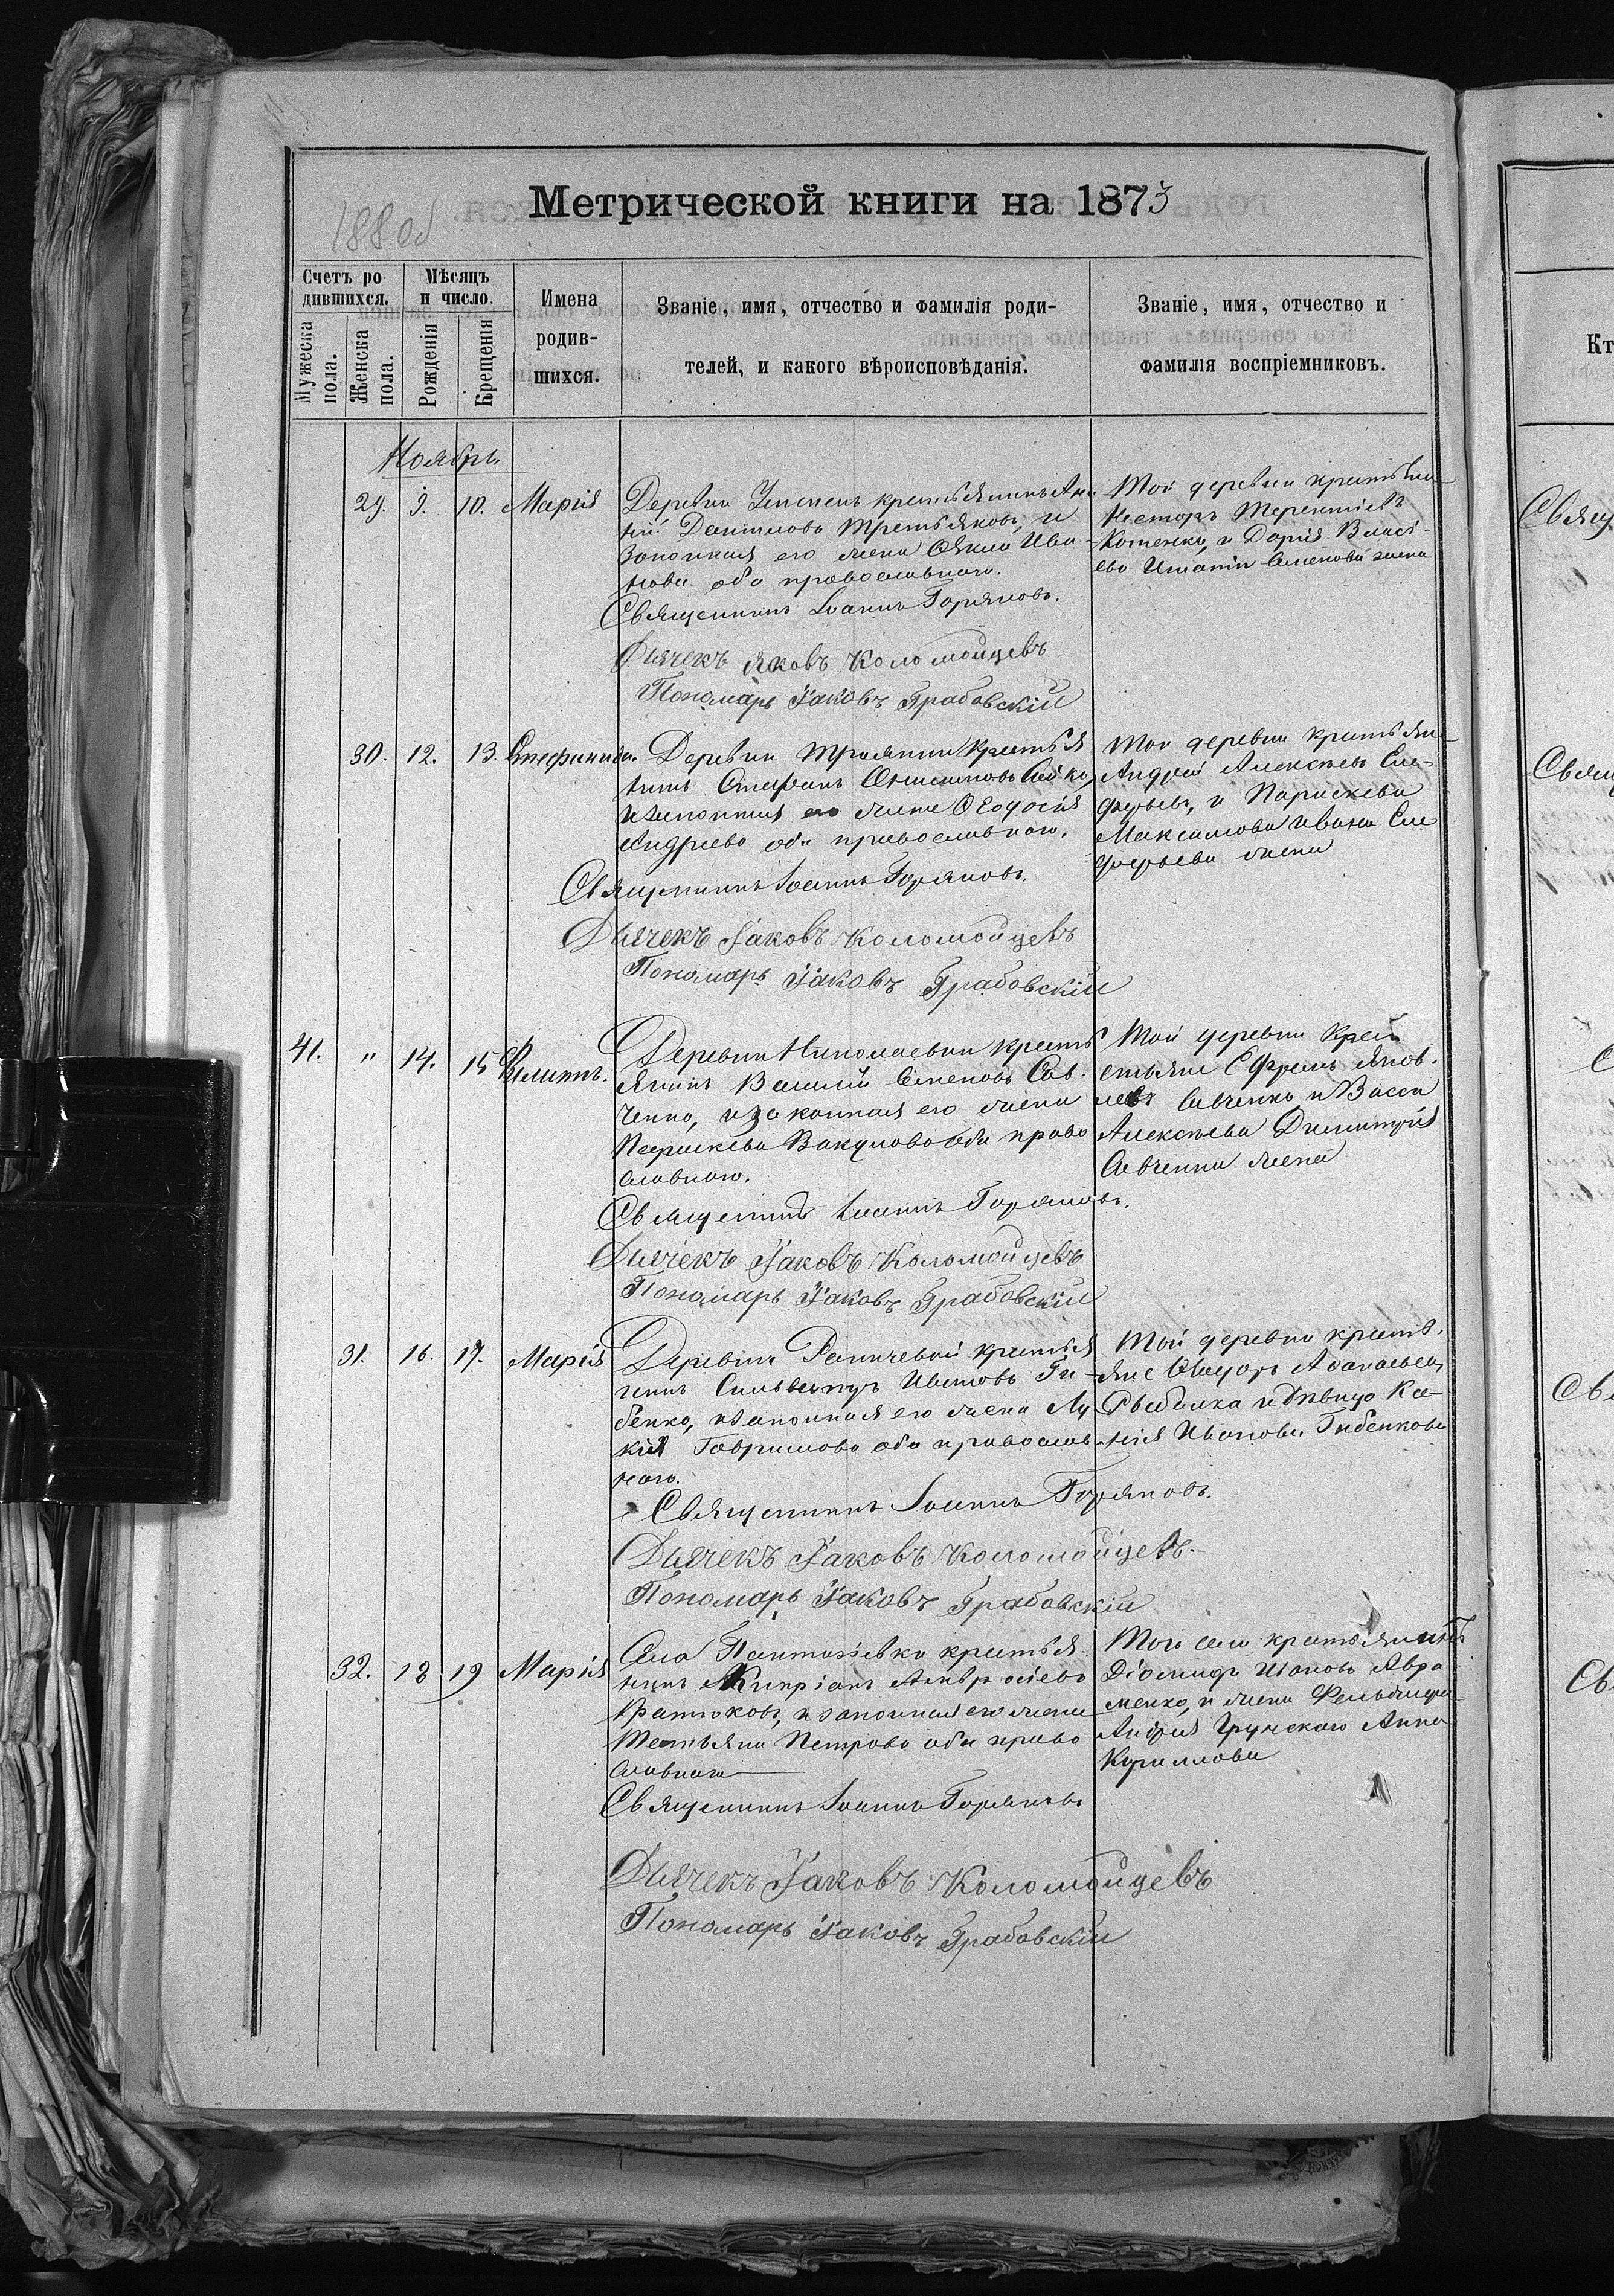 Метрической книги на 1873
188 об
Счетъ ро-
дившихся.
Мужеска пола.
Женска пола.
Мѣсяцъ
и число.
Рожденія
Крещенія
Имена
родив-
шихся.
Званіе, имя, отчество и фамилія роди-
телей, и какого вѣроисповѣданія.
Званіе, имя, отчество и
фамилія воспріемниковъ.
Ноябрь
29. 9. 10. Марія
Деревни крестьянинъ
Даниловъ Третьяковъ, и
законная его жена Ива-
нова оба православнаго.
Священникъ Іоаннъ Горяновъ.
Дьячекъ Яковъ Коломойцевъ
Пономарь Іаковъ Грабовскій
Той деревни крестьяне
Несторъ Терентіевъ
Котенко, и Дарія Власі-
ева Семенова жена
30. 12. 13. Стефанида.
Деревни Трояни крестья
нинъ Стефанъ Онисимовъ
и законная его жена Ѳеодосія
Андреева оба православнаго.
Священникъ Іоаннъ Горяновъ.
Дьячекъ Іаковъ Коломойцевъ
Пономарь Іаковъ Грабовскій
Той деревни крестьяне
Андрей Алексѣевъ Си-
доровъ, и Параскева
Максимова Ивана Си
дорова жена
41. " 14. 15 Филиппъ.
Деревни Николаевки кресть
янинъ Василій Семеновъ Сав-
ченко, и законная его жена
Параскева Вакулова оба право
славнаго.
Священникъ Іоаннъ Горяновъ.
Дьячекъ Іаковъ Коломойцевъ
Пономарь Іаковъ Грабовскій
Той деревни кре
стьяне Ефремъ Яков-
левъ Савченко и Васса
Алексѣева Димитрія
Савченки жена
31. 16. 17. Марія
Деревни крестья
нинъ Сильвестръ Ивановъ Ги-
бенко, и законная его жена Лу
кія Гаврилова оба православ
наго.
Священникъ Іоаннъ Горяновъ.
Дьячекъ Іаковъ Коломойцевъ.
Пономарь Іаковъ Грабовскій
Той деревни кресть-
яне Ѳедоръ Аѳанасьевъ
Рыбалка и дѣвица Ксе-
нія Иванова Гибенкова
32. 18 19 Марія
Села Пантаѣевки крестья-
нинъ Кипріанъ Амвросіевъ
и законная его жена
Татьяна Петрова оба право
славнаго
Священникъ Іоаннъ Горяновъ
Дьячекъ Іаковъ Коломойцевъ
Пономарь Іаковъ Грабовскій
Того села крестьянинъ
Діомидъ Ивановъ Авра
менко, и жена Фельдшера
Андрея Грунскаго Анна
Кириллова